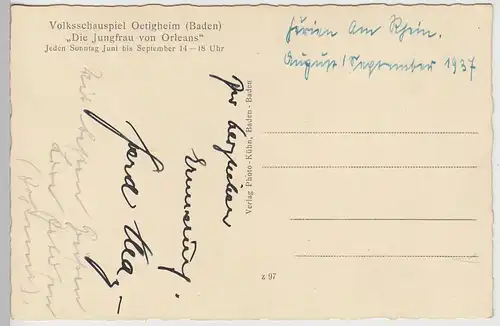 Volksschauspiel Oetigheim (Baden)
„Die Jungfrau von Orleans"
Jeden Sonntag Juni bis September 14—18 Uhr
Ferien am Rhein.
August/September 1937
Zur herzlichen
Erinnerung.
Mit besten
Verlag Photo-Kühn, Baden-Baden
z 97